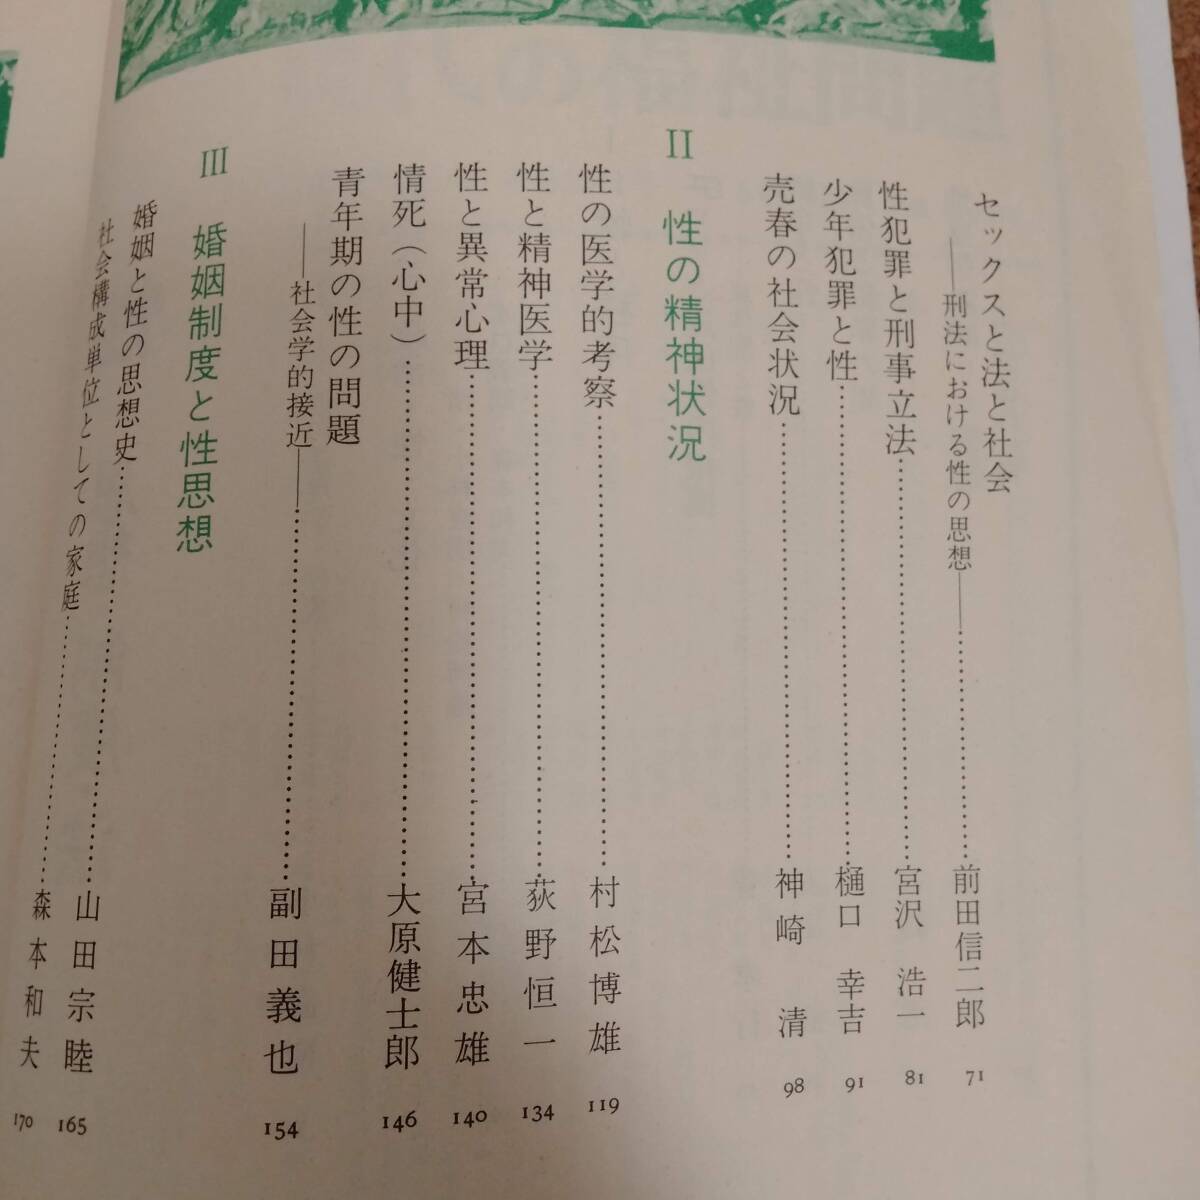 セックスと法と社会
——刑法における性の思想——……前田信二郎 71
性犯罪と刑事立法……宮沢 浩一 81
少年犯罪と性……樋口 幸吉 91
売春の社会状況……神崎 清 98
II 性の精神状況
性の医学的考察……村松博雄 119
性と精神医学……荻野恒一 134
性と異常心理……宮本忠雄 140
情死（心中）……大原健士郎 146
青年期の性の問題
——社会学的接近——……副田義也 154
III 婚姻制度と性思想
婚姻と性の思想史……山田宗睦 165
社会構成単位としての家庭……森本和夫 170